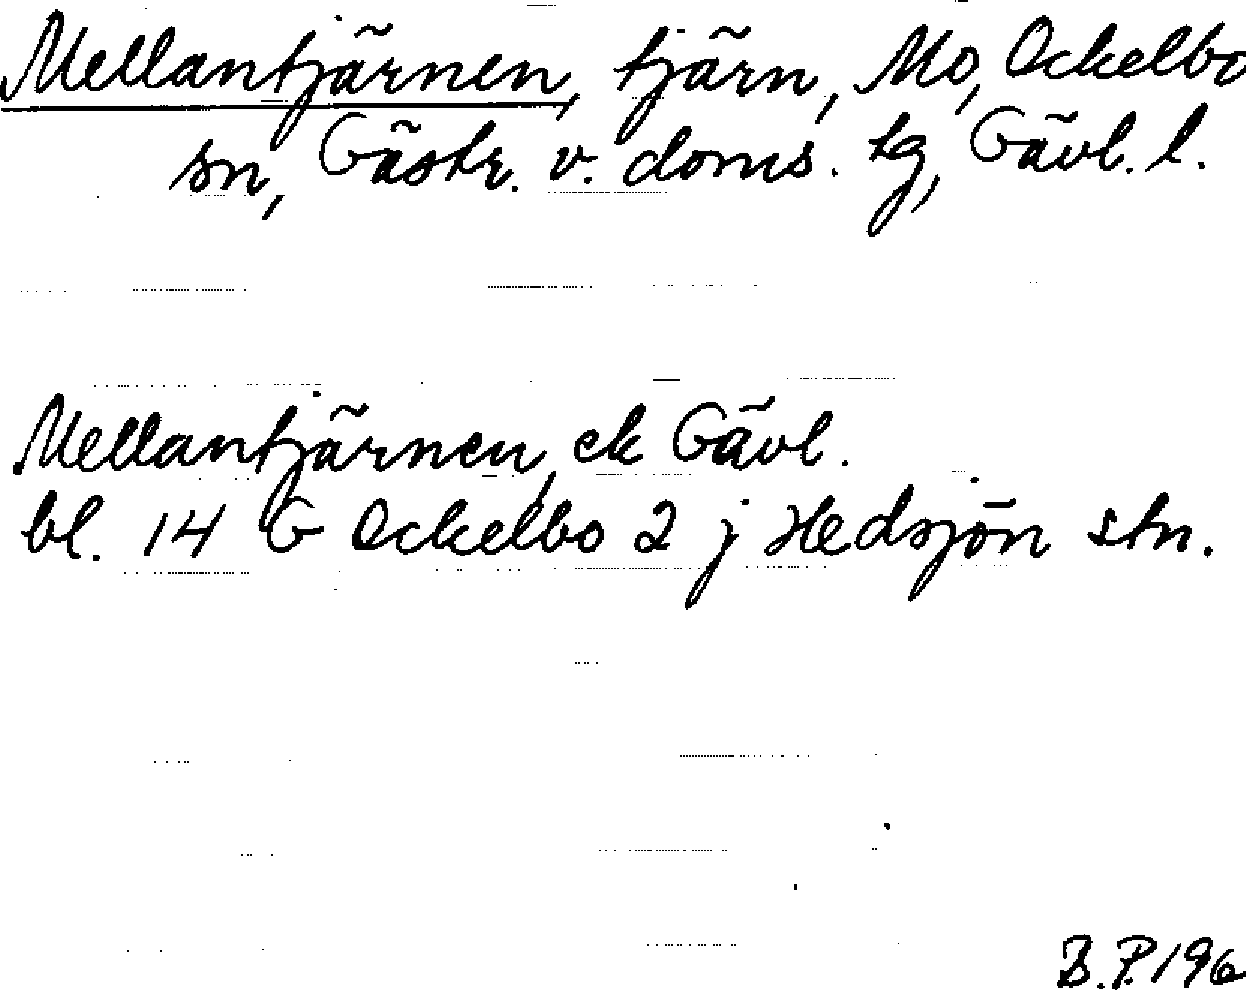 Mellantjärnen, tjärn, Mo, Ockelbo
sn, Gästr. v. doms. tg, Gävl. l.
Mellantjärnen, ek Gävl.
bl. 14 G Ockelbo 2 j Hedsjön stn.
B.P. 196